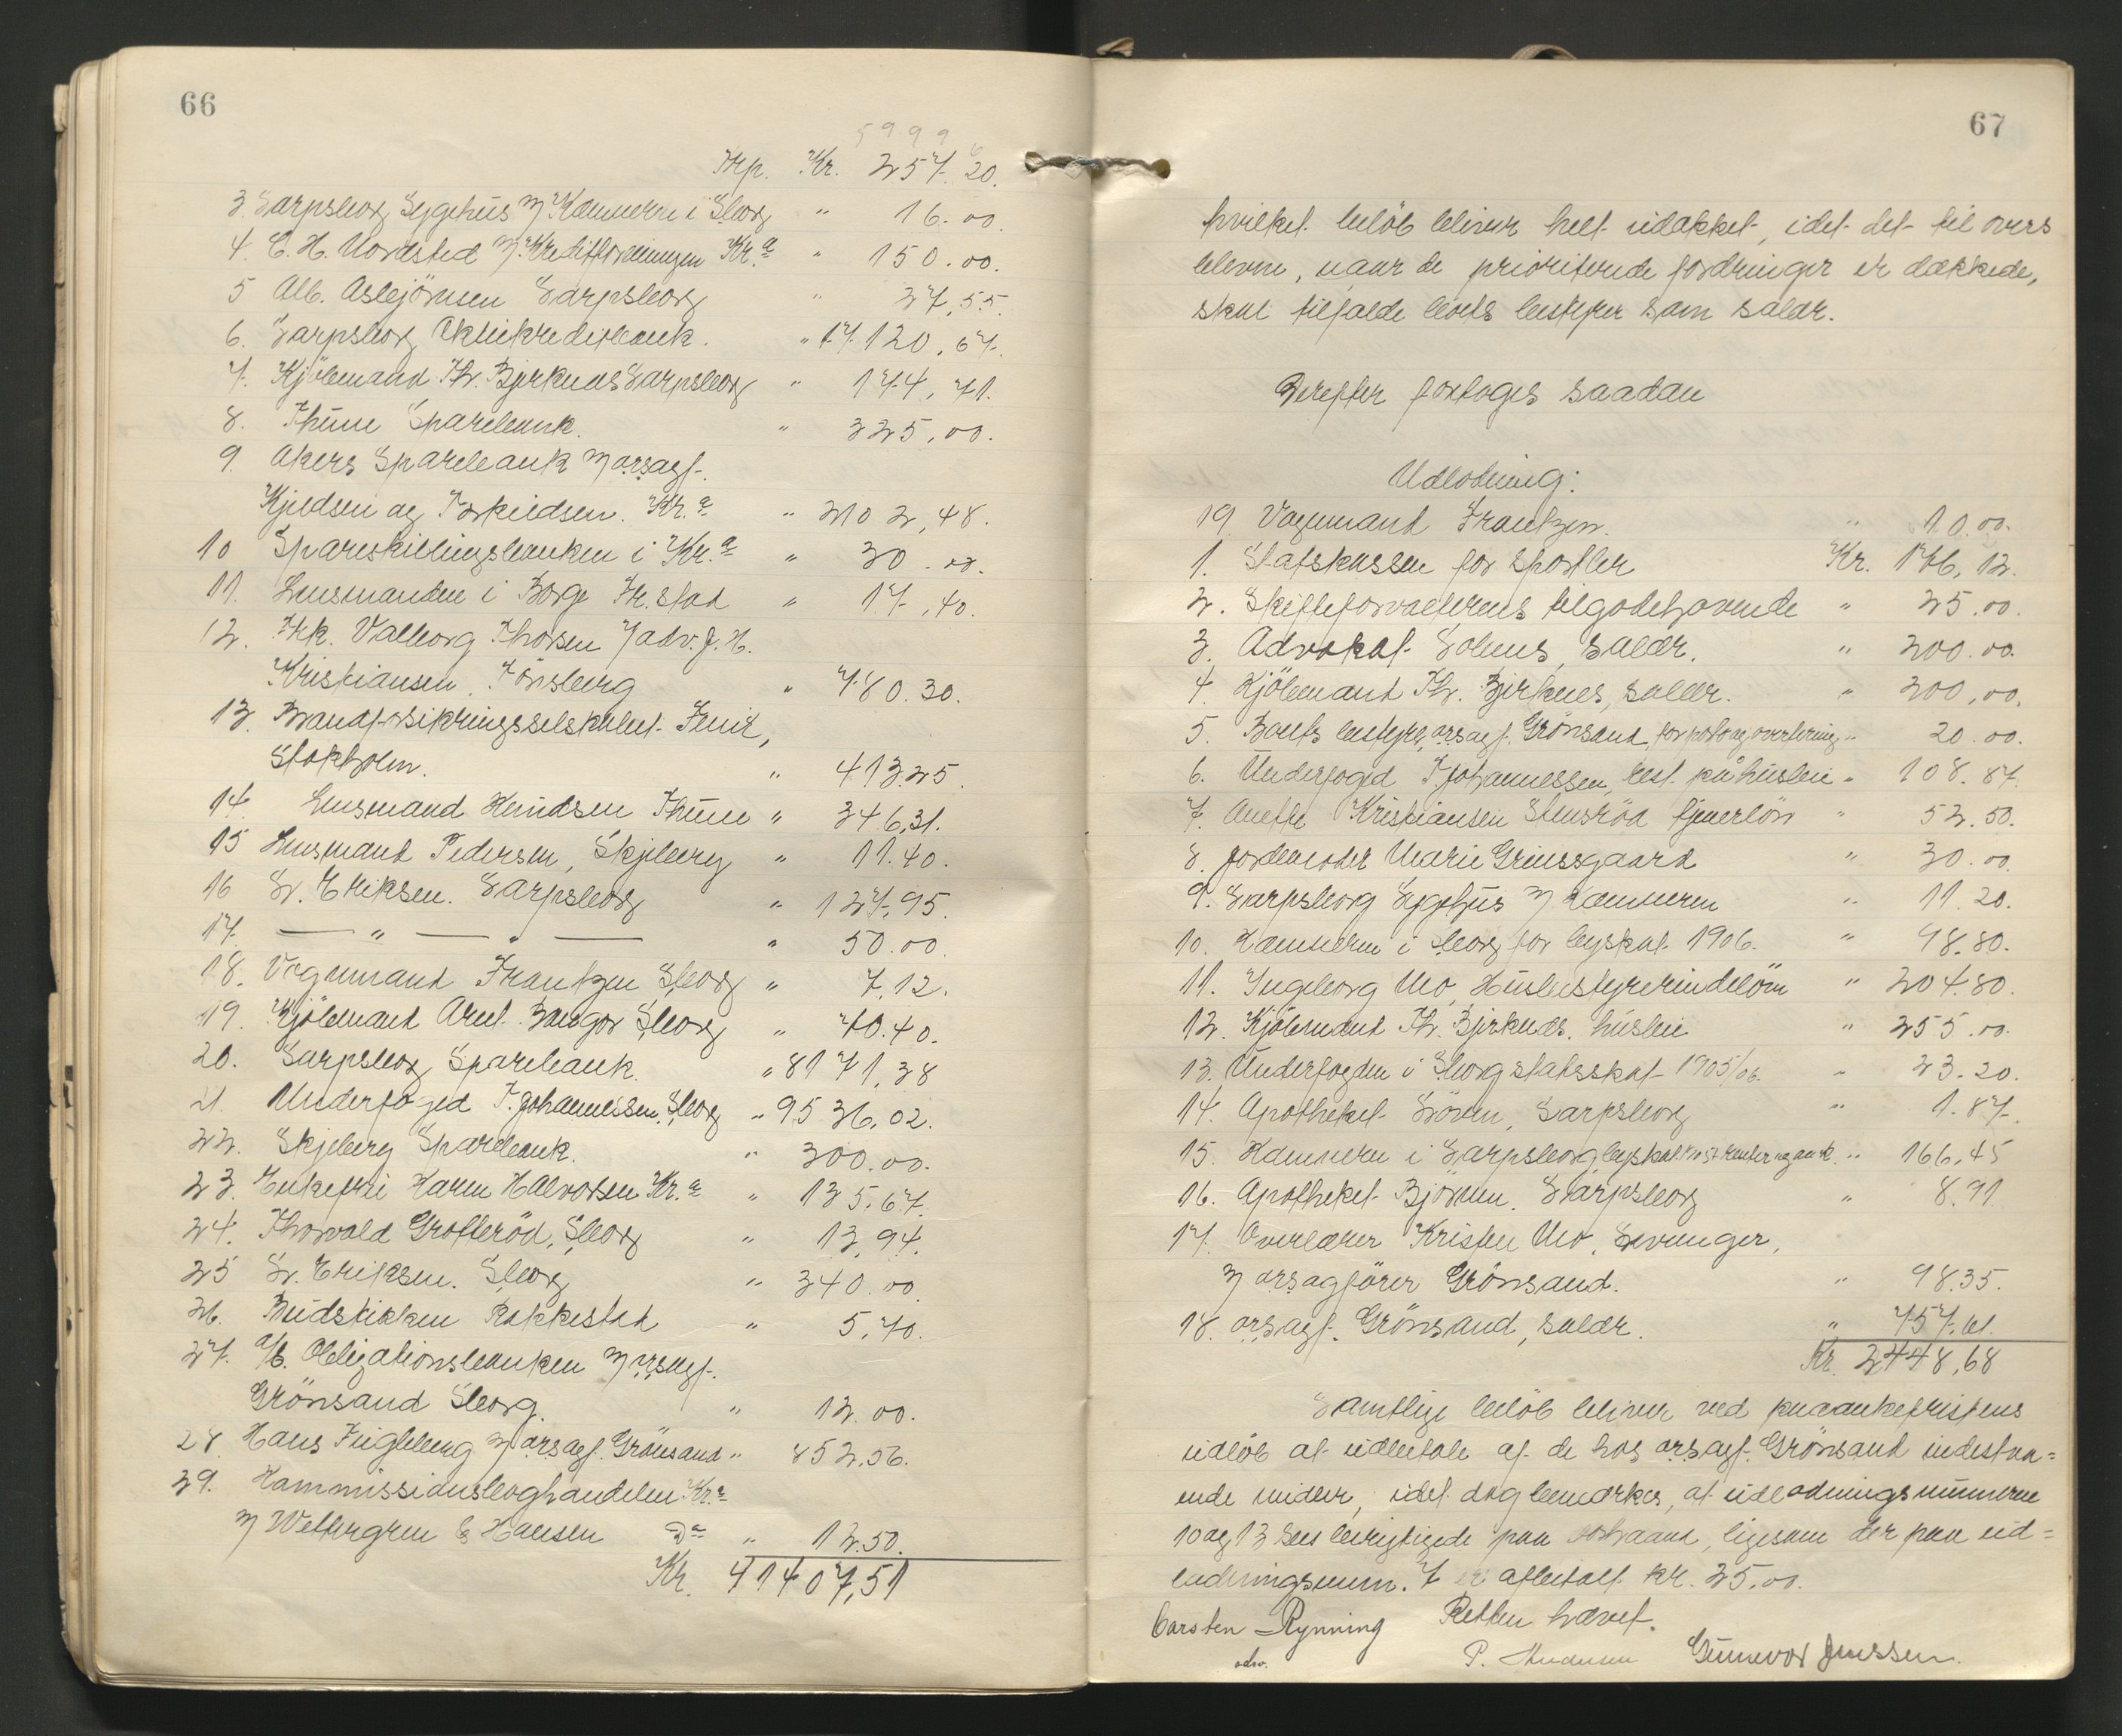 66
5999
Trp. Kr. 257.20.
3. Sarpsborg Sygehus v/ Kæmneren i S.borg " 16.00.
4. C. H. Nordsted v/ Kreditforeningen Kr.a " 150.00.
5 Alb. Asbjörnsen Sarpsborg " 27,55.
6. Sarpsborg Aktiekreditbank. " 17120,67.
7. Kjöbmand Th. Bjerknæs Sarpsborg " 174,71.
8. Thune Sparebank. " 325,00.
9 Akers Sparebank v/ orsagf.
Kjeldsen og Torkildsen. Kr.a " 2102,48.
10 Spareskillingsbanken i Kr.a " 30.00.
11. Lensmanden i Borge Fr.stad " 17,40.
12. Frk. Valborg Thorsen v/ adv. J. H.
Kristiansen, Tönsberg " 780.30.
13 Brandforsikringsselskabet Fenix,
Stokholm. " 413.25.
14. Lensmand Knudsen Thune " 346,31.
15 Lensmand Pedersen, Skjeberg " 11.40.
16 L. Eriksen. Sarpsborg " 127,95.
17. — " — " — " 50.00.
18. Vognmand Frantzen S.borg " 7,12.
19. Kjöbmand Arnt Bangor S.borg " 70.40.
20. Sarpsborg Sparebank. " 8171,38
21. Underfoged T. Johannessen, S.borg " 9536,02.
22. Skjeberg Sparebank. " 300.00.
23. Enkefru Karen Halvorsen Kr.a " 135,67.
24. Thorvald Grotteröd, S.borg " 13,94.
25 L. Eriksen. S.borg " 340.00.
26. Budstikken Rakkestad " 5,70.
27. A/S. Obligationsbanken v/ orsagf.
Grönsand S.borg. " 12.00.
28. Hans Fugleberg v/ orsagf. Grönsand " 852,56.
29. Kommissionsboghandelen Kr.a
v/ Wettergren & Hansen Do " 12.50.
Kr. 41407,51
67
hvilket belöb bliver helt udækket, idet det til overs
blevne, naar de prioriterede fordringer er dækkede,
skal tilfalde boets bestyrer som salær.
Derefter foretoges saadan
Udlodning:
19. Vognmand Frantzen. " 10.00.
1. Statskassen for sportler Kr. 176,12.
2. Skifteforvalterens tilgodehavende " 25.00.
3. Advokat Solums, salær. " 200.00.
4. Kjöbmand Th. Bjerknes, salær. " 200,00.
5. Boets bestyrer, orsagf. Grönsand, for porto og avertering " 20.00.
6. Underfoged T. Johannessen, rest. på husleie " 108.87.
7. Anette Kristiansen Stensröd tjenerlön " 52.50.
8. Jordemoder Marie Grimsgaard " 30.00.
9. Sarpsborg Sygehus v/ Kæmneren " 11.20.
10. Kæmneren i S.borg for byskat 1906. " 98.80.
11. Ingeborg Mo, Husbestyrerindelön " 204.80.
12. Kjöbmand Th. Bjerknæs. husleie " 255.00.
13. Underfogden i S.borg statsskat 1905/06. " 23.20.
14. Apotheket Löven, Sarpsborg " 1.87.
15. Kæmneren i Sarpsborg, byskat " 166,45
16. Apotheket Björnen. Sarpsborg " 8.91
17. Overlærer Kristen Mo, Levanger,
v/ orsagförer Grönsand. " 98.35.
18. orsagf. Grönsand, salær. " 757.61.
Kr. 2448,68
Samtlige belöb bliver ved paaankefristens
udlöb at udbetale af de hos orsagf. Grönsand indestaa=
ende midler, idet dog bemærkes, at udlodningsnumrene
10 og 13 sees berigtigede paa forhaand, ligesom der paa ud=
lodningsnum. 7 er afbetalt kr. 25.00.
Retten hævet.
Carsten Rynning
adv.
P. Andersen Gunnvor Jenssen.